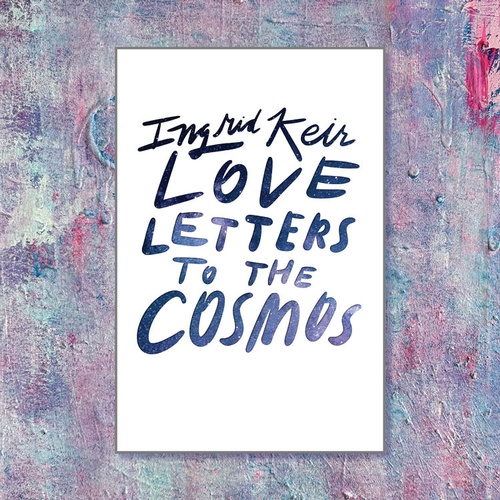 Ingrid Keir
LOVE
LETTERS
TO THE
COSMOS